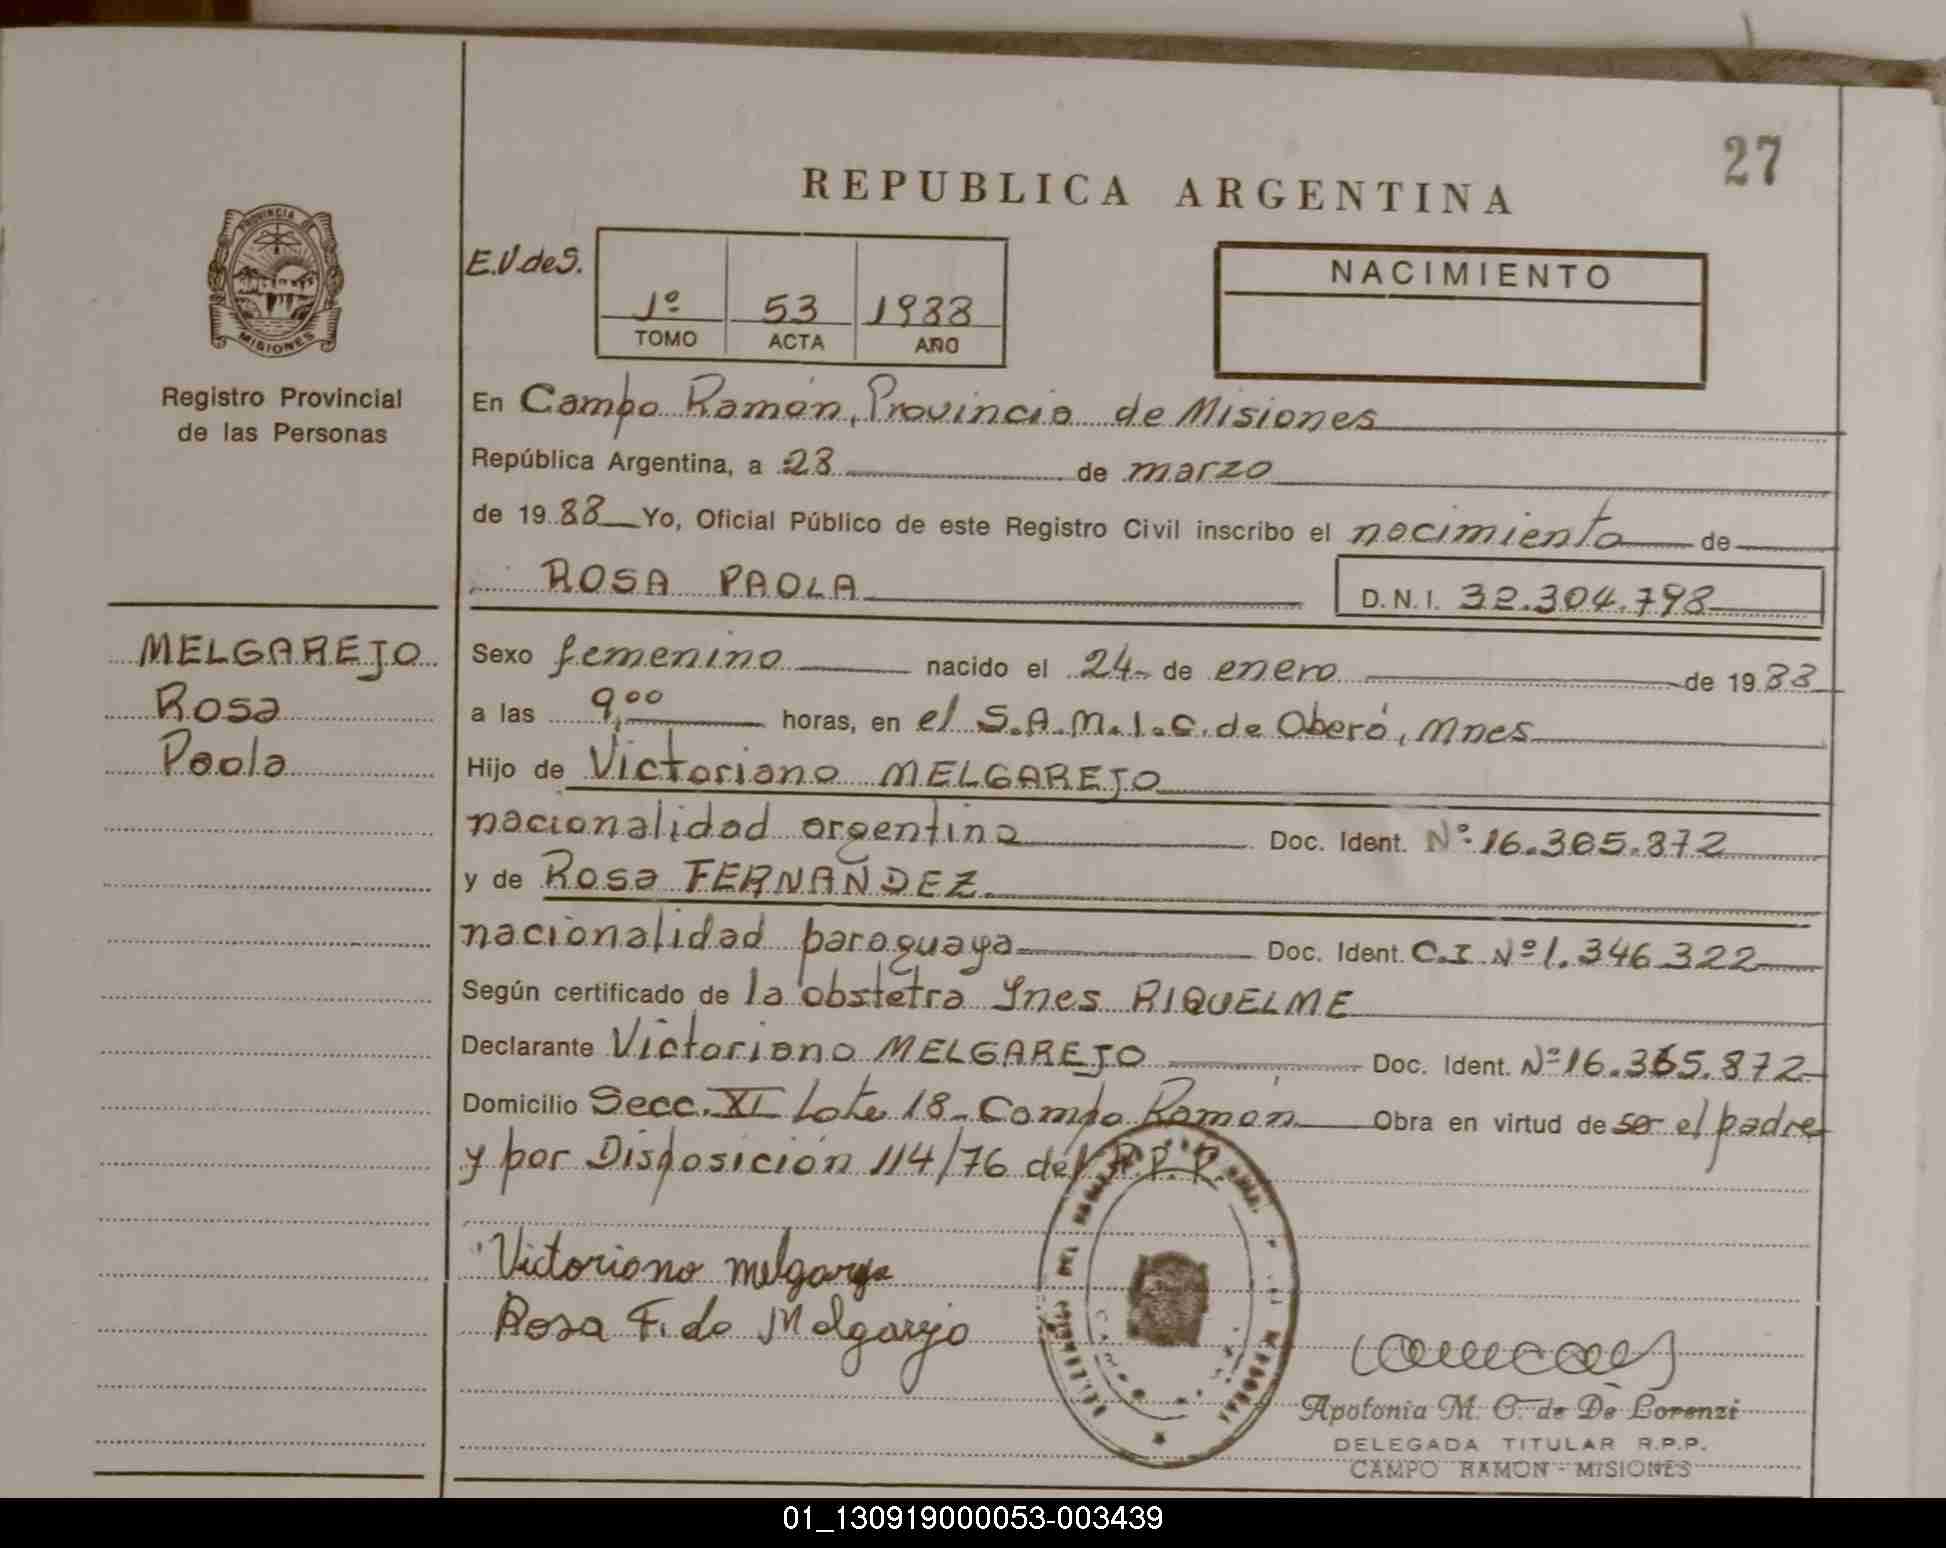 27
REPUBLICA ARGENTINA
PROVINCIA DE
MISIONES
Registro Provincial
de las Personas
E.V.deS.
1º 53 1988
TOMO ACTA AÑO
NACIMIENTO
En Campo Ramón, Provincia de Misiones
República Argentina, a 28 de marzo
de 19 88 Yo, Oficial Público de este Registro Civil inscribo el nacimiento de
ROSA PAOLA D.N.I. 32.304.798
MELGAREJO
Rosa
Paola
Sexo femenino nacido el 24 de enero de 19 88
a las 9,00 horas, en el S.A.M.I.C. de Oberá, Mnes
Hijo de Victoriano MELGAREJO
nacionalidad argentina Doc. Ident. Nº 16.365.872
y de Rosa FERNANDEZ
nacionalidad paraguaya Doc. Ident. C.I. Nº 1.346.322
Según certificado de la obstetra Ines RIQUELME
Declarante Victoriano MELGAREJO Doc. Ident. Nº 16.365.872
Domicilio Secc. XI Lote 18 - Campo Ramón Obra en virtud de ser el padre
y por Disposición 114/76 del R.P.P.
Victoriano Melgarejo
Rosa F. de Melgarejo
Apolonia M. C. de De Lorenzi
DELEGADA TITULAR R.P.P.
CAMPO RAMON - MISIONES
01_130919000053-003439